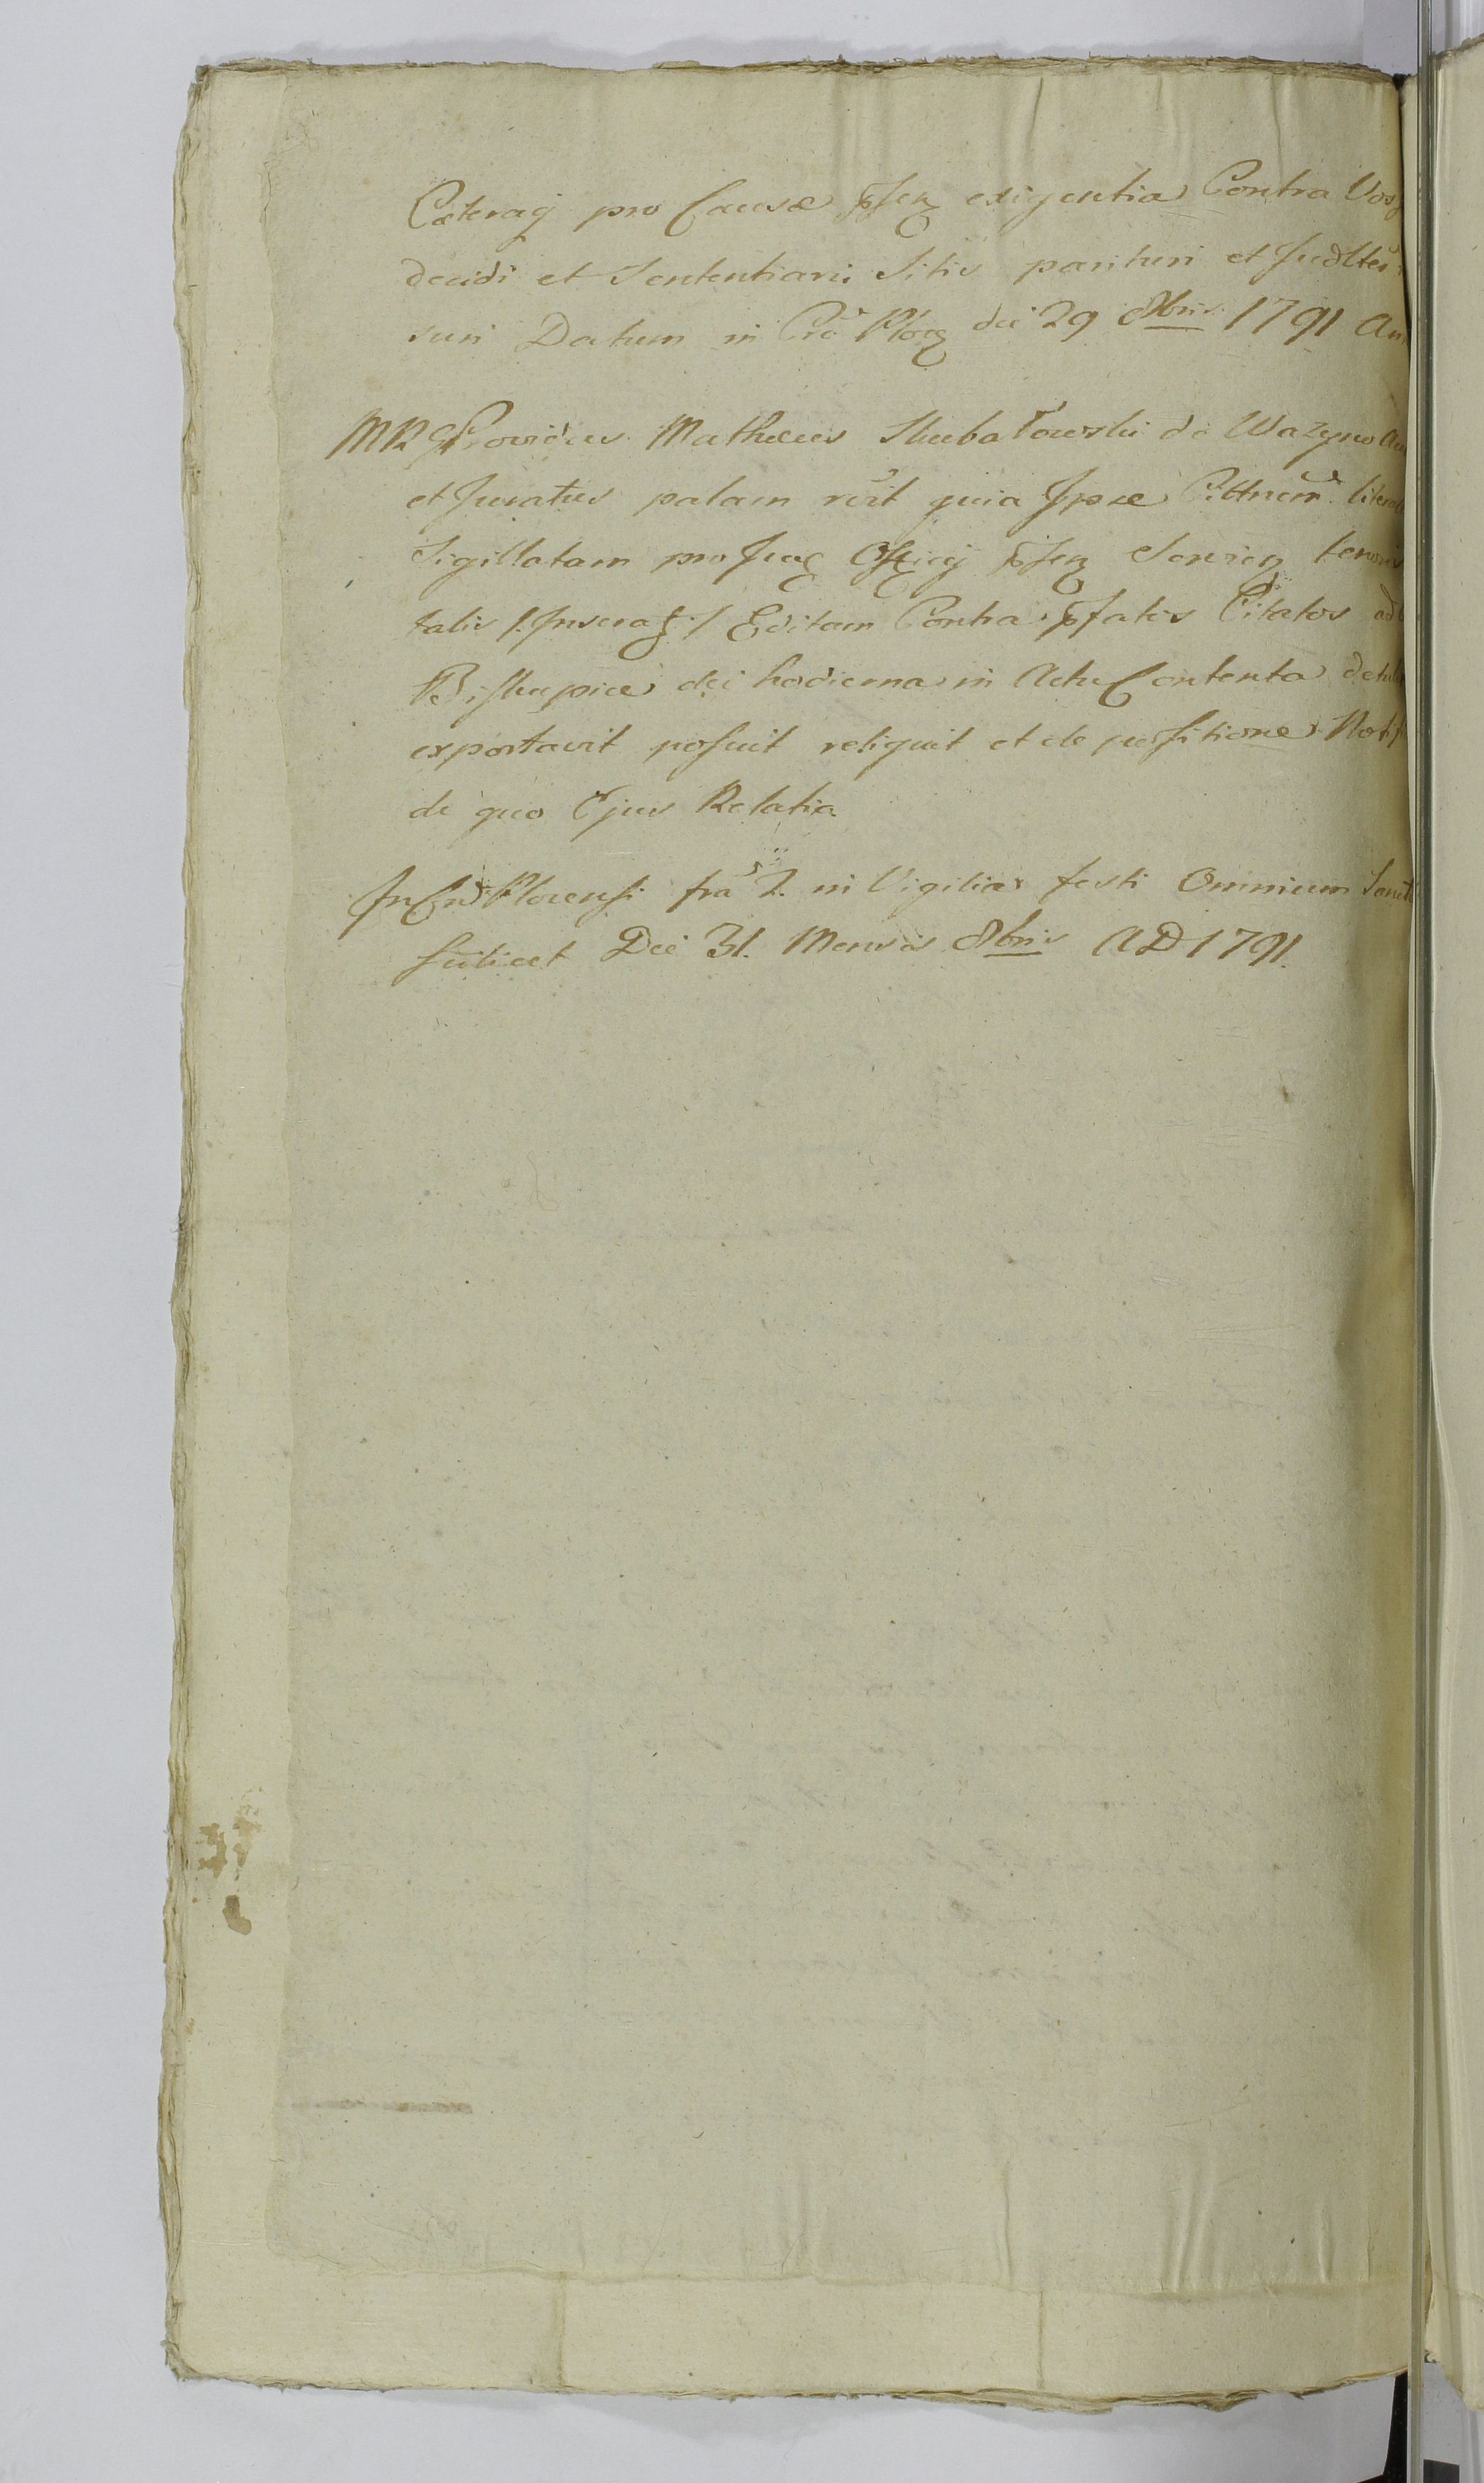 Cæteraq pro Causæ pſeɳ exigentia Contra Vos
decidi et Sententiari Sitis parituri et Judlter
suri Datum in Crō Płoɳ die 29 8bris 1791 An
MR Providus Mathæus Skubatowski de Wazyno
et Juratus palam rūit quia Ipse Cittnem literal
Sigillatam pro Juɳ Officij pſeɳ Servieɳ tenoris
talis /:Inseraɳ:/ Editam Contra pfatos Citatos ad
Biskupice die hodierna in Actu Contenta detul
exportavit posuit reliquit et de positione Notif
de quo Ejus Relatio
In Plocensi fra 2. in Vigilia festi Omnium Sanct
scilicet Die 31. Mensis 8bris AD 1791.